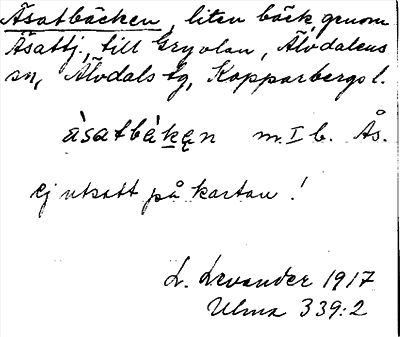 Åsatbäcken, liten bäck, genom
Åsattj., till Gryvlan, Älvdalens
sn, Älvdals tg, Kopparbergs l.
àsatbä̀kęn m.I b. Ås.
ej utsatt på kartan!
L. Levander 1917
Ulma 339:2